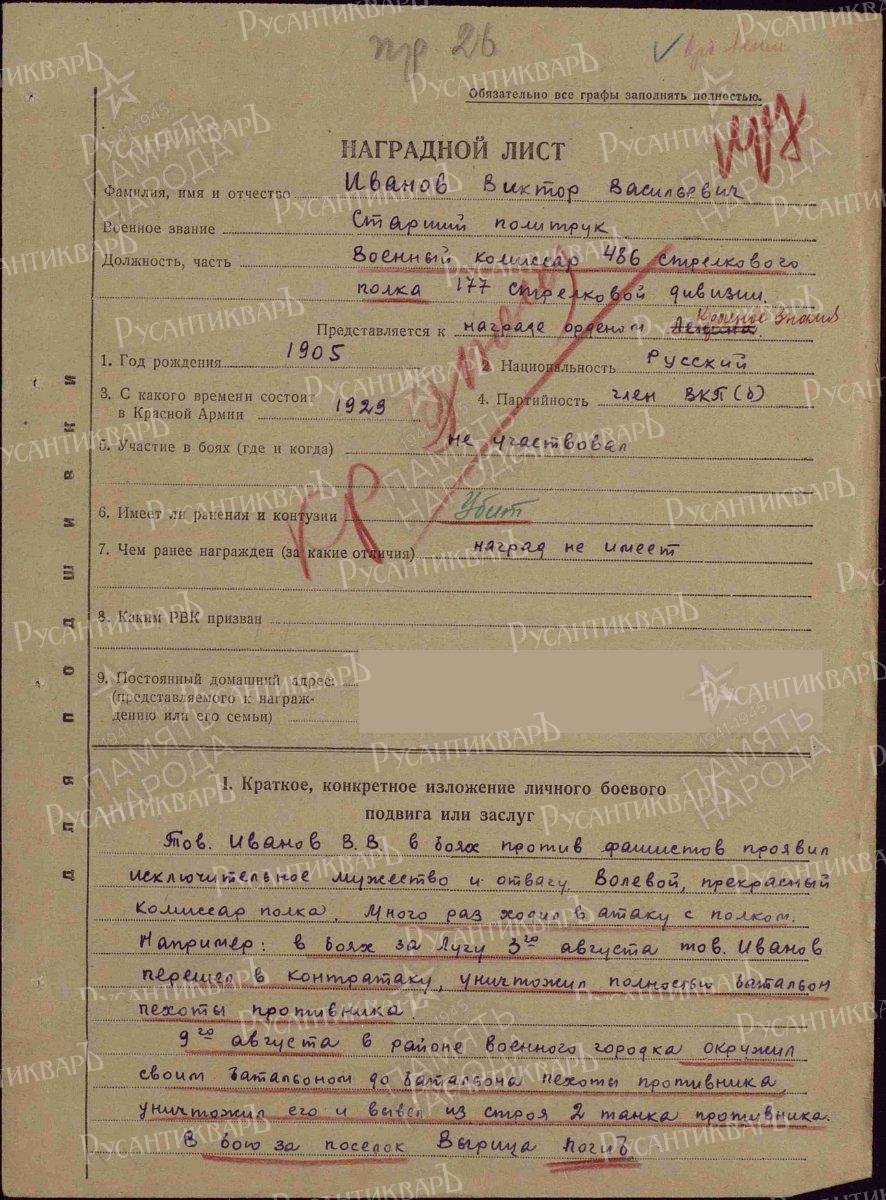 пр 26
Обязательно все графы заполнять полностью.
НАГРАДНОЙ ЛИСТ
Фамилия, имя и отчество Иванов Виктор Васильевич
Военное звание Старший политрук
Должность, часть Военный комиссар 486 стрелкового
полка 177 стрелковой дивизии.
Представляется к награде орденом Ленина. Красное Знамя
1. Год рождения 1905 2. Национальность Русский
3. С какого времени состоит
в Красной Армии 1929 4. Партийность член ВКП(б)
5. Участие в боях (где и когда) не участвовал
6. Имеет ли ранения и контузии Убит
7. Чем ранее награжден (за какие отличия) наград не имеет
8. Каким РВК призван
9. Постоянный домашний адрес:
(представляемого к награж-
дению или его семьи)
ДЛЯ ПОДШИВКИ
I. Краткое, конкретное изложение личного боевого
подвига или заслуг
Тов. Иванов В.В. в боях против фашистов проявил
исключительное мужество и отвагу. Волевой, прекрасный
комиссар полка. Много раз ходил в атаку с полком.
Например: в боях за Лугу 3го августа тов. Иванов
перешел в контратаку, уничтожил полностью батальон
пехоты противника.
9го августа в районе военного городка окружил
своим батальоном до батальона пехоты противника,
уничтожил его и вывел из строя 2 танка противника.
В бою за поселок Вырица погиб
РусАнтикварЪ
ПАМЯТЬ НАРОДА
1941-1945